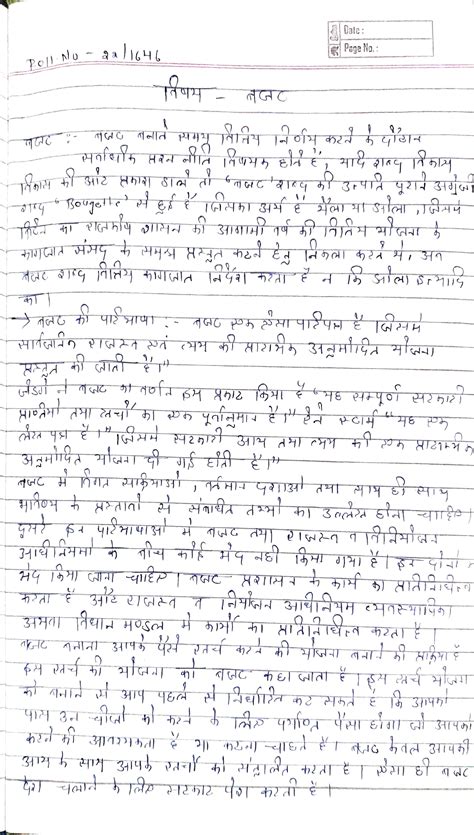 Date :
Page No. :
Roll No - 22/1646
विषय - बजट
बजट :- बजट बनाते समय वित्तिय निर्णय करने के दौरान
सर्वाधिक प्रश्न नीति विषयक होते है, यदि शब्द विकास
विकास की ओर प्रकाश डाले तो "बजट" शब्द की उत्पति पुराने अंग्रेजी
शब्द "Bougette" से हुई है जिसका अर्थ है थैला या झोला, जिसमे
ब्रिटेन का राजकोष शासन की आगामी वर्ष की वित्तिय योजना के
कागजात संसद के समक्ष प्रस्तुत करने हेतु निकला करते थे, अत
बजट शब्द वित्तिय कागजात निर्देश करता है न कि झोला इत्यादि
का।
→ बजट की परिभाषा :- बजट एक ऐसा परिपत्र है जिसमे
सार्वजनिक राजस्व एवं व्यय की प्रारम्भिक अनुमोदित योजना
प्रस्तुत की जाती है।"
ने बजट का वर्णन इस प्रकार किया है "यह सम्पूर्ण सरकारी
प्राप्तियो तथा खर्चो का एक पूर्वानुमान है।" रेने स्टार्म "यह एक
लेख पत्र है।" जिसमे सरकारी आय तथा व्यय की एक प्रारम्भिक
अनुमोदित योजना दी गई होती है।"
बजट मे विगत सक्रियाओ, वर्तमान दशाओ तथा साथ ही साथ
भविष्य के प्रस्तावो से संबंधित तथ्यो का उल्लेख होना चाहिए।
दूसरे इन परिभाषाओ मे बजट तथा राजस्व व विनियोजन
अधिनियमो के बीच कोई भेद नही किया गया है। इन दोनो मे
भेद किया जाना चाहिए। बजट प्रशासन के कार्य का प्रतिनिधित्व
करता है और राजस्व व नियोजन अधिनियम व्यवस्थापिका
अथवा विधान मण्डल मे कार्यो का प्रतिनिधित्व करता है।
बजट बनाना आपके पैसे खर्च करने की योजना बनाने की प्रक्रिया है
इस खर्च की योजना को बजट कहा जाता है। इस खर्च योजना
को बनाने से आप पहले से निर्धारित कर सकते है कि आपके
पास उन चीजो को करने के लिए पर्याप्त पैसा होगा जो आपको
करने की आवश्यकता है या करना चाहते है। बजट केवल आपकी
आय के साथ आपके खर्चो को संतुलित करता है। ऐसा ही बजट
देश चलाने के लिए सरकार पेश करती है।